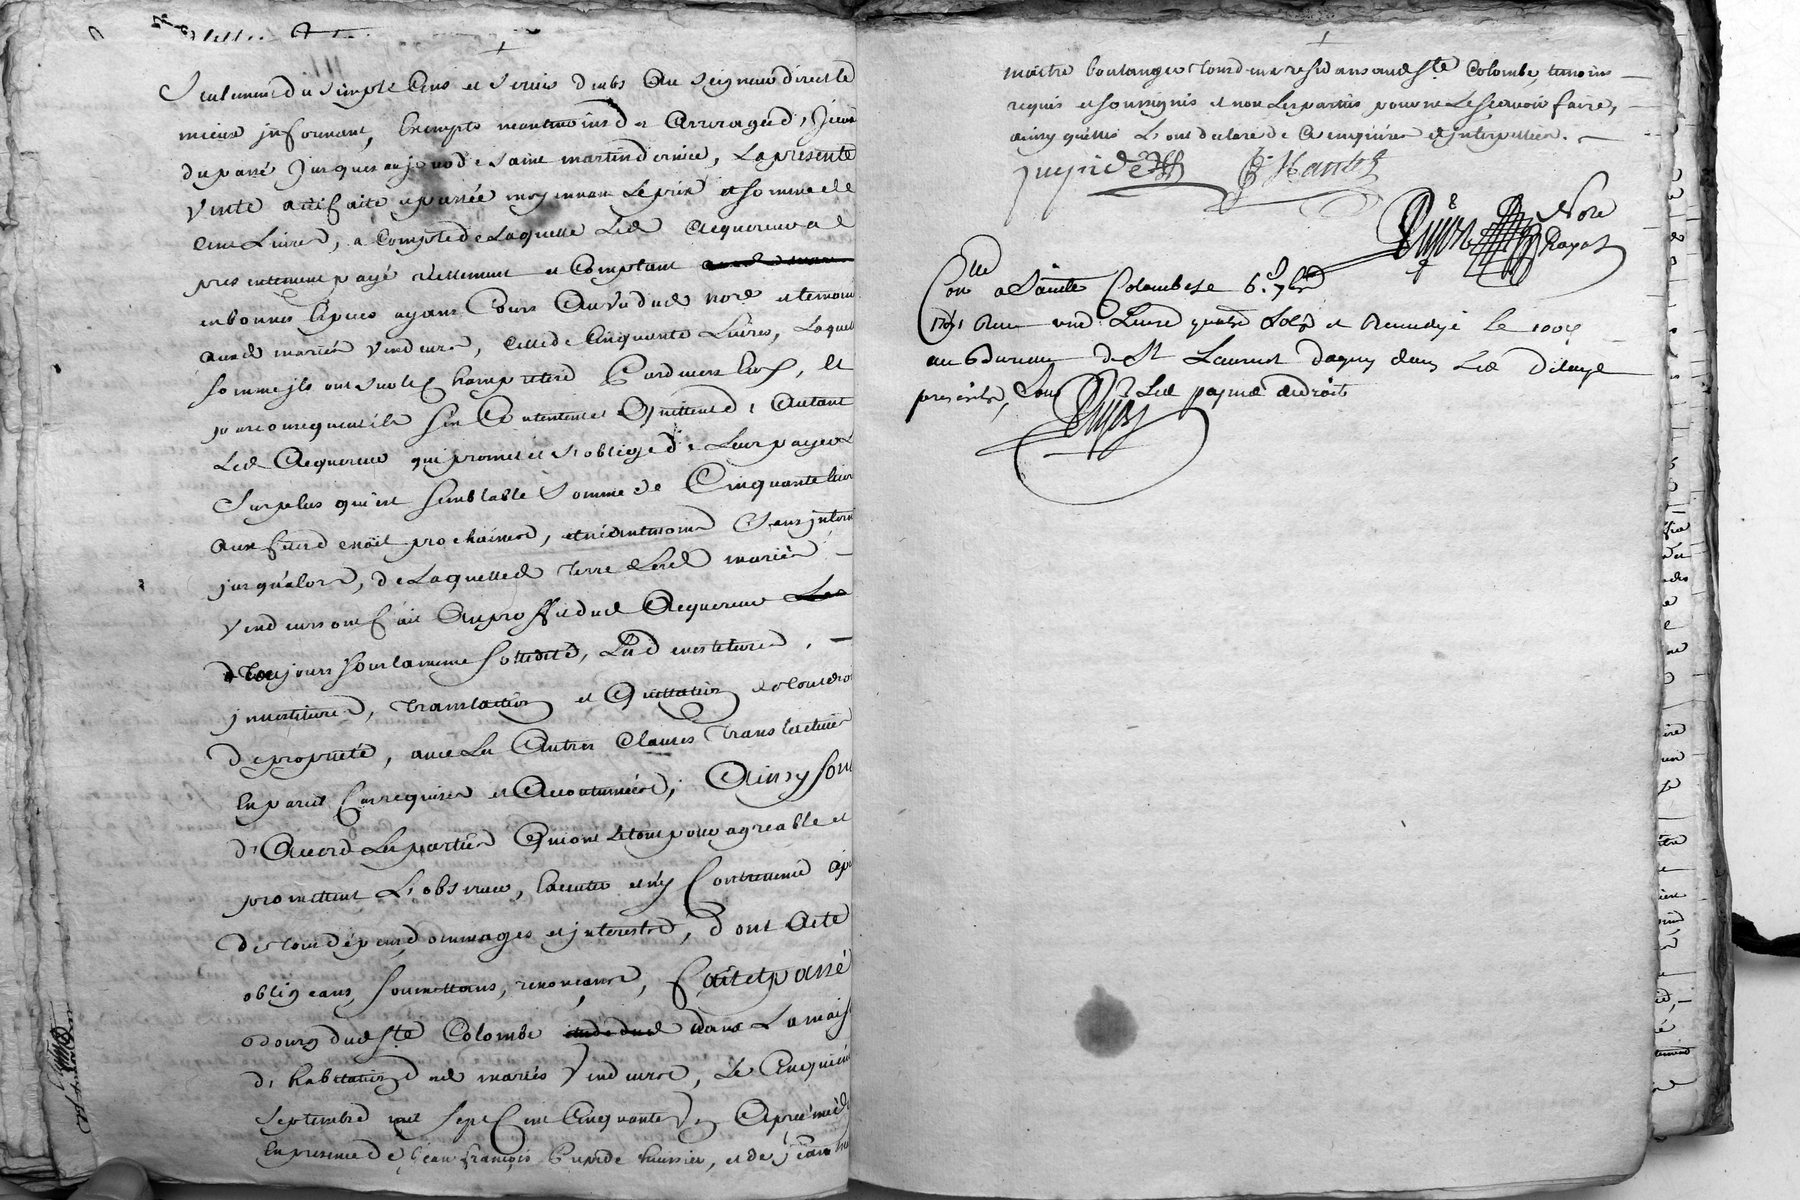 Seulement du simple Cens et Servis deubs au Seigneur direct le
mieux informant, Exempte neantmoins d'arrerages d'iceux
du passé Jusques au jour de Saint martin dernier, La presente
Vente ainsi faite et passée moyennant Le prix et somme de
Cent Livres, a Compte de Laquelle Led acquereur a
presentement payé réellement et Comptant
en bonnes Especes ayant Cours au Vu dud Nore et temoins
auxd mariés Vendeurs, Celle de Cinquante Livres, Laquelle
somme ils ont sur le Champ retiré Pardevers Eux, Et
parconsequent ils s'en Contentent et Quittent d'autant
Led Acquereur qui promet et s'oblige de Leur payer Le
Surplus qu'est semblable Somme de Cinquante Livres
aux festes de noël prochaines, et neantmoins Sans interet
jusqu'alors, de Laquelle Terre Lesd mariés
Vendeurs ont fait au proffit dud Acquereur
Toujours sous la meme solidité, Les devestitures,
jnvestitures, Translation et Quittation de tous droits
de proprieté, avec Les Autres Clauses Translatives
En pareil Cas requises et Accoutumées; Ainsy sont
d'Accord Les parties Qui ont Le tout pour agreable et
promettent L'observer, Executer et n'y Contrevenir a peine
de tous dépens, dommages et jnterests, dont Acte
obligeans, soumettans, renonçans, Fait et passé
au bourg dud Ste Colombe dans La maison
d'habitation des mariés Vendeurs, Le Cinquième
Septembre mil Sept Cent Cinquante Un Après midy
En presence de jean françois Pupide huissier, et de jean
maitre boulanger tous deux residans aud Ste Colombe, temoins
requis et soussignés et non Les parties pour ne Le sçavoir faire,
ainsy qu'elles L'ont declaré de Ce enquises et jnterpellées.
pupide
Nore
Royal
Conlle a Sainte Colombe le 6e 7bre
1751 Reçu une Livre quatre sols et Renvoyé le 100e
au Bureau de St Laurent dagny dans Les Delays
presents, Sous Les peines de droit